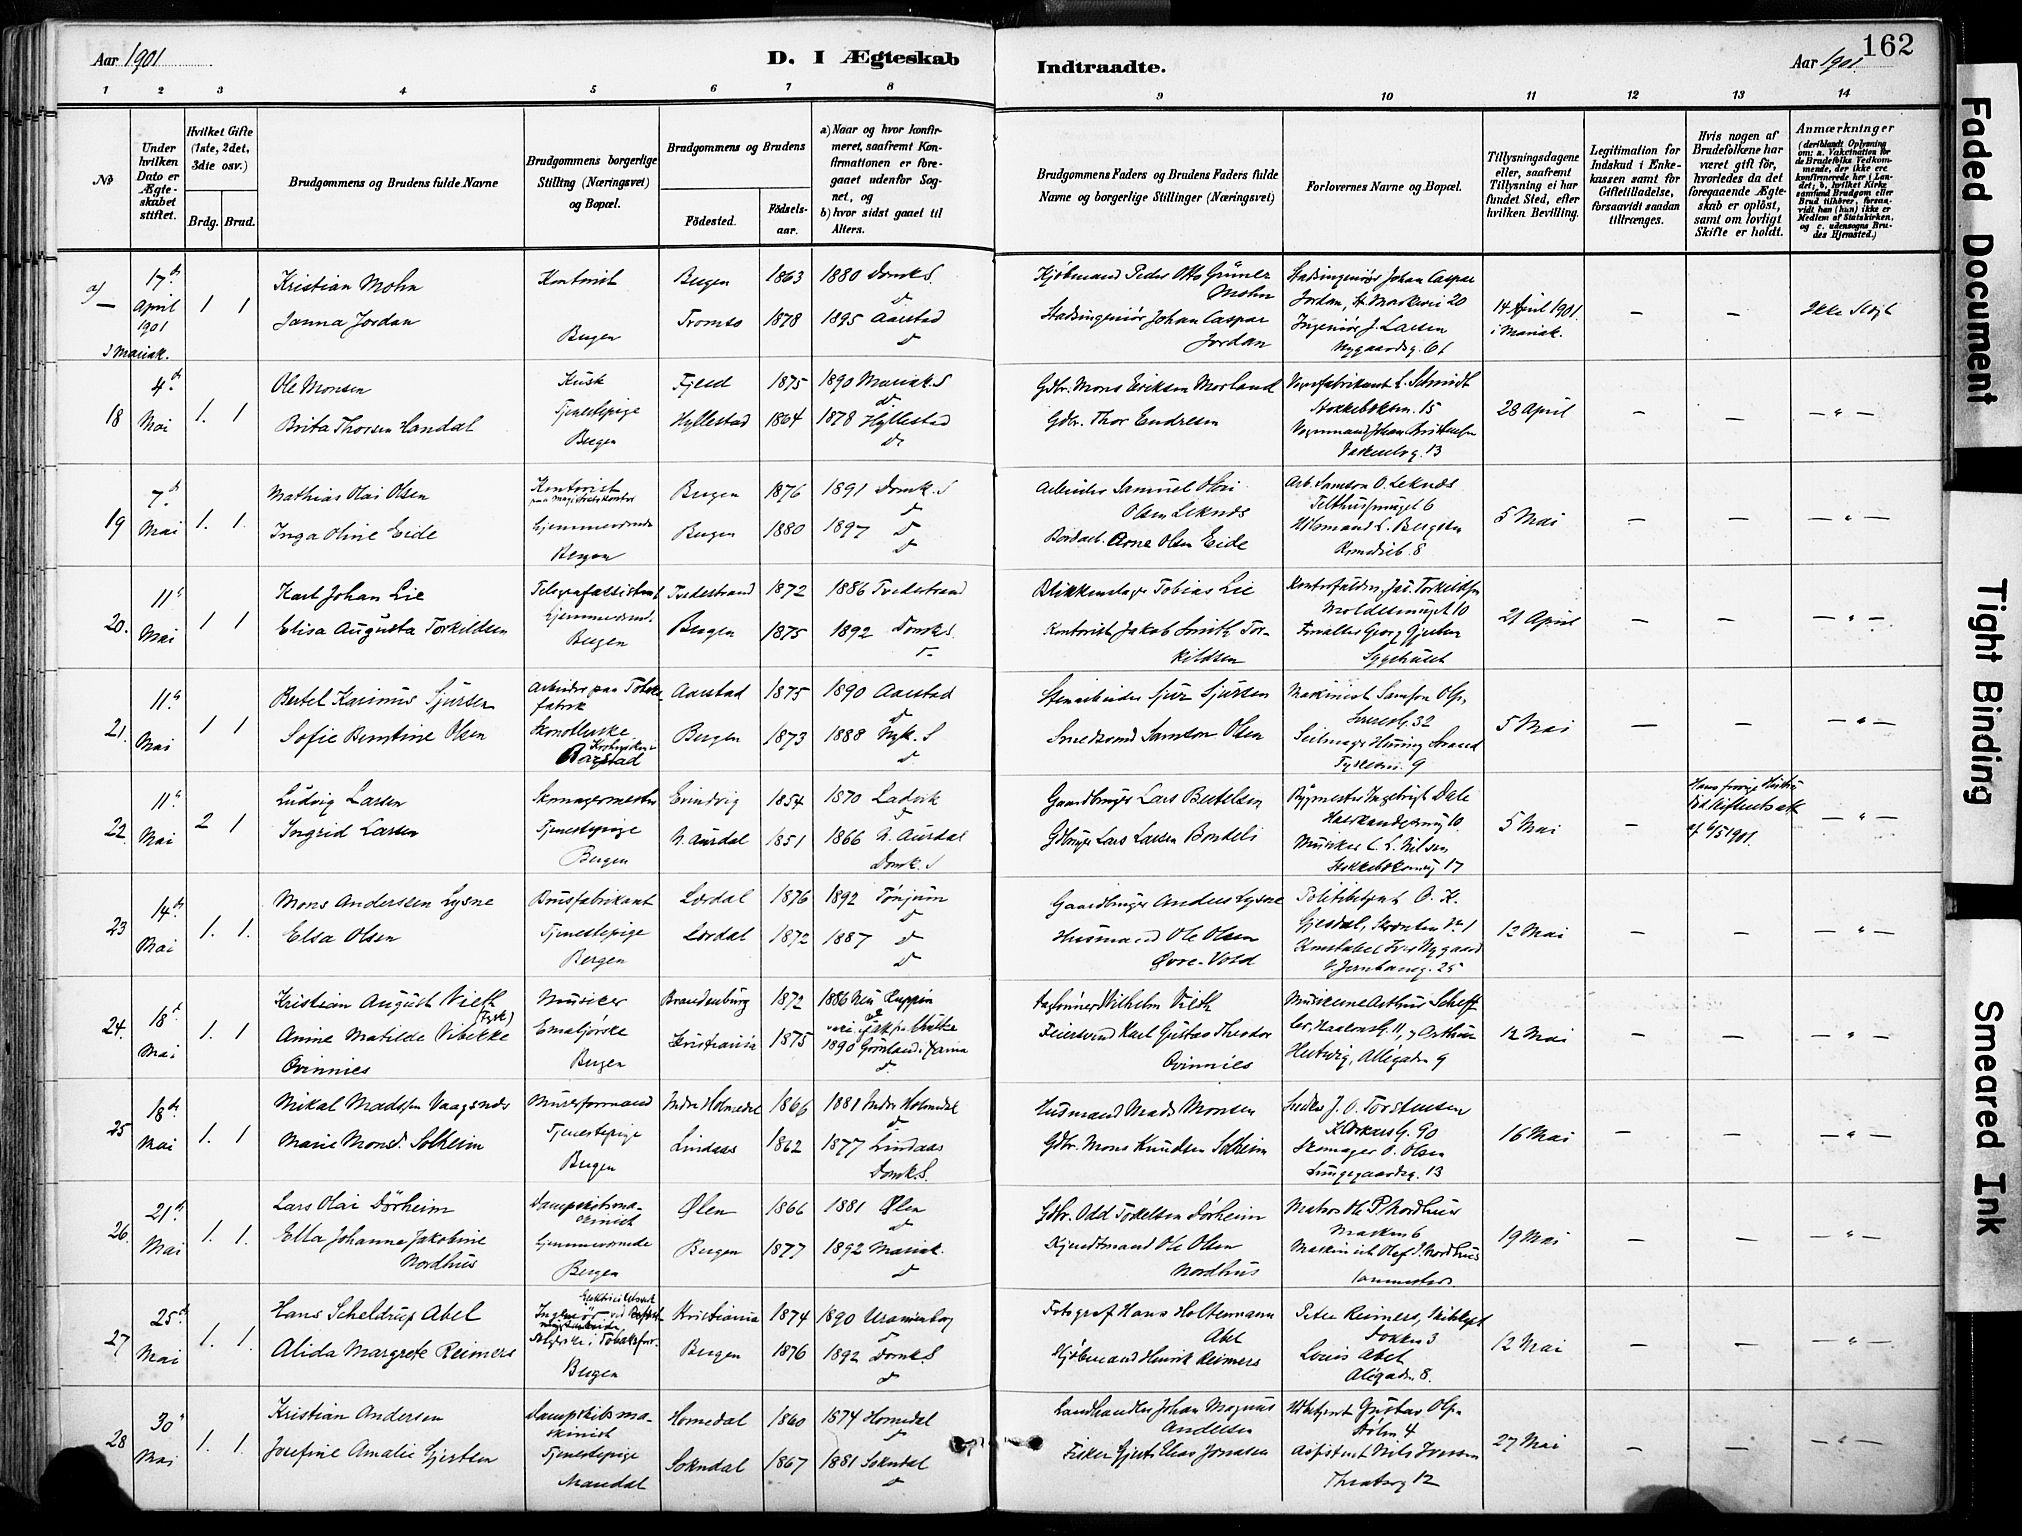 162
Aar 1901
D. I Ægteskab
Indtraadte.
Aar 1901
1 2 3 4 5 6 7 8 9 10 11 12 13 14
No
Under hvilken Dato er Ægteskabet stiftet.
Hvilket Gifte (1ste, 2det, 3die osv.)
Brdg. Brud.
Brudgommens og Brudens fulde Navne
Brudgommens borgerlige Stilling (Næringsvei) og Bopæl.
Brudgommens og Brudens
Födested.
Födselsaar.
a) Naar og hvor konfirmeret, saafremt Konfirmationen er foregaaet udenfor Sognet, og
b) hvor sidst gaaet til Alters.
Brudgommens Faders og Brudens Faders fulde Navne og borgerlige Stillinger (Næringsvei)
Forlovernes Navne og Bopæl.
Tillysningsdagene eller, saafremt Tillysning ei har fundet Sted, efter hvilken Bevilling.
Legitimation for Indskud i Enkekassen samt for Giftetilladelse, forsaavidt saadan tiltrænges.
Hvis nogen af Brudefolkene har været gift för, hvorledes da det foregaaende Ægteskab er oplöst, samt om lovligt Skifte er holdt.
Anmærkninger (deriblandt Oplysning om: a. Vakcination for de Brudefolks Vedkommende, der ikke ere konfirmerede her i Landet; b. hvilket Kirkesamfund Brudgom eller Brud tilhörer, forsaavidt han (hun) ikke er Medlem af Statskirken, og c. udensogns Brudes Hjemsted.)
a) — 17de April 1901 I Mariak. 1 1
Kristian Mohn Kontorist Bergen 1863 1880 Domk S.
Janna Jordan Bergen Tromsö 1878 1895 Aarstad
Kjøbmand Peder Otto Grüner Mohn
Stadsingeniör Johan Caspar Jordan
Stadsingeniör Johan Caspar Jordan, St. Markevei 20
Ingeniör J. Larsen Nygaardsg. 61
14 April 1901 i Mariak. — — Ikke Slegt
18 4de Mai 1. 1
Ole Monsen Kusk Fjeld 1875 1890 Mariak. S
Brita Thorsen Handal Tjenestepige Bergen Hyllestad 1864 1878 Hyllestad
Gdbr. Mons Eriksen Morland
Gdbr. Thor Endresen
L. Schmidt
15
13
28 April — — — " —
19 7de Mai 1. 1.
Mathias Olai Olsen Kontorist Bergen 1876 1891 Domk. S
Inga Oline Eide Hjemmeværende Bergen Bergen 1880 1897
Arbeider Samuel Olai Olsen Leknes
Bordarb. Arne Olsen Eide
Arb. Samson O. Leknes
L. Bergsten
8
5 Mai — — — " —
20. 11te Mai 1 1
Karl Johan Lie Telegrafassistent Tvedestrand 1872 1886 Tvedestrand
Elisa Augusta Torkildsen Hjemmevær. Bergen Bergen 1875 1892 Domk S.
Blikkenslager Tobias Lie
Kontorist Jakob Smith Torkildsen
Torkildsen
10
Forvalter Georg
Sygehuset
21 April — — — " —
21. 11te Mai 1 1
Bertel Kasimus Sjursen Arbeider paa Tobaksfabrik Aarstad 1875 1890 Aarstad
Sofie Berntine Olsen Aarstad Bergen 1873 1888 Nyk. S
Stenarbeider Sjur Sjursen
Smedsvend Samson Olsen
Maskinist Samson Olsen
32
Strand
9
5 Mai — — — " —
22. 11te Mai 2 1
Ludvig Larsen Skomagermester Evindvig 1854 1870 Ladvik
Ingrid Larsen Tjenestepige Bergen N. Aurdal 1851 1866 N. Aurdal Domk. S
Gaardbruger Lars Bertelsen
Gdbruger Lars Larsen Bondeli
Bygmester Ingebrigt Dale
10.
Musiker C. L. Nilsen
17
5 Mai — af 4/5 1901. — " —
23 14de Mai 1. 1.
Mons Anderssen Lysne Brusfabrikant Lærdal 1876 1892 Tönjum
Elsa Olsen Tjenestepige Bergen Lærdal 1872 1887
Gaardbruger Anders Lysne
Husmand Ole Olsen Øvre-Vold
Politibetjent O. K. Gjesdal, Skonten 21
Konstabel Iver Nygaard
25
12 Mai — — — " —
24. 18de Mai 1. 1
Kristian August Vieth (Tysk) Musiker Brandenburg 1872 1886 Neu Ruppin
Anine Matilde Vibekke Qvinnies Bergen Kristiania 1875 1890 Grönland i Xania
Vilhelm Vieth
Feiersvend Karl Gustav Theodor Qvinnies
Musikerne Arthur Scheffler, Haakonsg. 11, og Arthur Hertwig, Allegaden 9
12 Mai — — — " —
25 18de Mai 1. 1
Mikal Madssen Vaagsnes Murerformand Indre Holmedal 1866 1881 Indre Holmedal
Marie Monsd. Solheim Tjenestepige Bergen Lindaas 1862 1877 Lindaas Domk S.
Husmand Mads Monsen
Gdbr. Mons Knudsen Solheim
J. O. Torstensen
90
Skomager O. Olsen
Lungegaardsg. 13
16 Mai — — — " —
26. 21de Mai 1. 1.
Lars Olai Dörheim Dampskibsmaskinist Ølen 1866 1881 Ølen
Ella Johanne Jakobine Nordhus Hjemmeværende Bergen Bergen 1877 1892 Mariak.
Gdbr. Odd Torkelsen Dörheim
Kjendtmand Ole Olsen Nordhus
Matros Ole P. Nordhus
6
Maskinist Olaf Nordhus
19 Mai — — — " —
27 25de Mai 1. 1.
Hans Scheldrup Abel Ingeniör Kristiania 1874 1890 Uranienborg
Alida Margrete Reimers Bergen Bergen 1876 1892 Domk S.
Fotograf Hans Holtermann Abel
Kjøbmand Henrik Reimers
Peter Reimers, Skibskapt. Dokken 3
Louis Abel Allegaden 8.
12 Mai — — — " —
28 30te Mai 1. 1.
Kristian Andersen Dampskibsmaskinist Homedal 1860 1874 Homedal
Josefine Amalie Gjertsen Tjenestepige Mandal Sokndal 1867 1881 Sokndal
Landhandler Johan Magnus Andersen
Fisker Gjert Elias Jonassen
Gustav Olsen Hölen 4
Assistent Nils Iversen
12
27 Mai — — — " —
Faded Document
Tight Binding
Smeared Ink